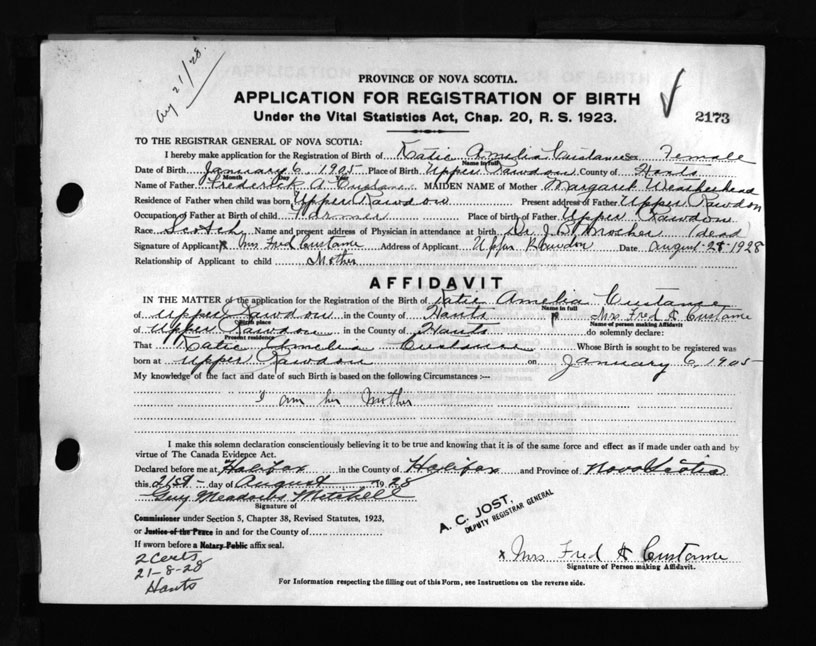 Aug 21/28.
PROVINCE OF NOVA SCOTIA.
APPLICATION FOR REGISTRATION OF BIRTH
Under the Vital Statistics Act, Chap. 20, R. S. 1923.
2173
TO THE REGISTRAR GENERAL OF NOVA SCOTIA:
I hereby make application for the Registration of Birth of Katie Amelia Custance Sex Female
Name in full
Date of Birth January 6 1905 Place of Birth Upper Rawdon County of Hants
Month Day Year
Name of Father Frederick A Custance MAIDEN NAME of Mother Margaret Weatherhead
Residence of Father when child was born Upper Rawdon Present address of Father Upper Rawdon
Occupation of Father at Birth of child Farmer Place of birth of Father Upper Rawdon
Race Scotch Name and present address of Physician in attendance at birth Dr. J. B. Mosher (dead)
Signature of Applicant x Mrs Fred Custance Address of Applicant Upper Rawdon Date August-28-1928
Relationship of Applicant to child Mother
AFFIDAVIT
IN THE MATTER of the application for the Registration of the Birth of Katie Amelia Custance
Name in full
of Upper Rawdon in the County of Hants I, Mrs Fred A Custance
Birth place
Name of person making Affidavit
of Upper Rawdon in the County of Hants do solemnly declare:
Present residence
That Katie Amelia Custance Whose Birth is sought to be registered was
born at Upper Rawdon on January 6, 1905
My knowledge of the fact and date of such Birth is based on the following Circumstances :—
I am her Mother
I make this solemn declaration conscientiously believing it to be true and knowing that it is of the same force and effect as if made under oath and by
virtue of The Canada Evidence Act.
Declared before me at Halifax in the County of Halifax and Province of Nova Scotia
this 21st- day of August 1928
Guy Meadows Mitchell
Signature of
Commissioner under Section 5, Chapter 38, Revised Statutes, 1923,
or Justice of the Peace in and for the County of
If sworn before a Notary Public affix seal.
A. C. JOST,
DEPUTY REGISTRAR GENERAL
2 Certs
21-8-28
Hants
x Mrs Fred A Custance
Signature of Person making Affidavit.
For Information respecting the filling out of this Form, see Instructions on the reverse side.